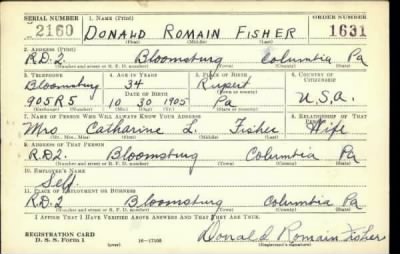 SERIAL NUMBER 1. NAME (Print) ORDER NUMBER
2160 DONALD ROMAIN FISHER 1631
(First) (Middle) (Last)
2. ADDRESS (Print)
R.D.2 Bloomsburg Columbia Pa
(Number and street or R. F. D. number) (Town) (County) (State)
3. TELEPHONE 4. AGE IN YEARS 5. PLACE OF BIRTH 6. COUNTRY OF CITIZENSHIP
Bloomsburg 34 Rupert
DATE OF BIRTH (Town or county)
905R5 10 30 1905 Pa U.S.A.
(Mo.) (Day) (Yr.) (State or country)
7. NAME OF PERSON WHO WILL ALWAYS KNOW YOUR ADDRESS 8. RELATIONSHIP OF THAT PERSON
Mrs Catharine L. Fisher Wife
(Mr., Mrs., Miss) (First) (Middle) (Last)
9. ADDRESS OF THAT PERSON
R.D.2. Bloomsburg Columbia Pa
(Number and street or R. F. D. number) (Town) (County) (State)
10. EMPLOYER'S NAME
Self.
11. PLACE OF EMPLOYMENT OR BUSINESS
R.D.2 Bloomsburg Columbia Pa
(Number and street or R. F. D. number) (Town) (County) (State)
I AFFIRM THAT I HAVE VERIFIED ABOVE ANSWERS AND THAT THEY ARE TRUE.
REGISTRATION CARD
D. S. S. Form 1 (over) 16—17105 Donald Romain Fisher
(Registrant's signature)